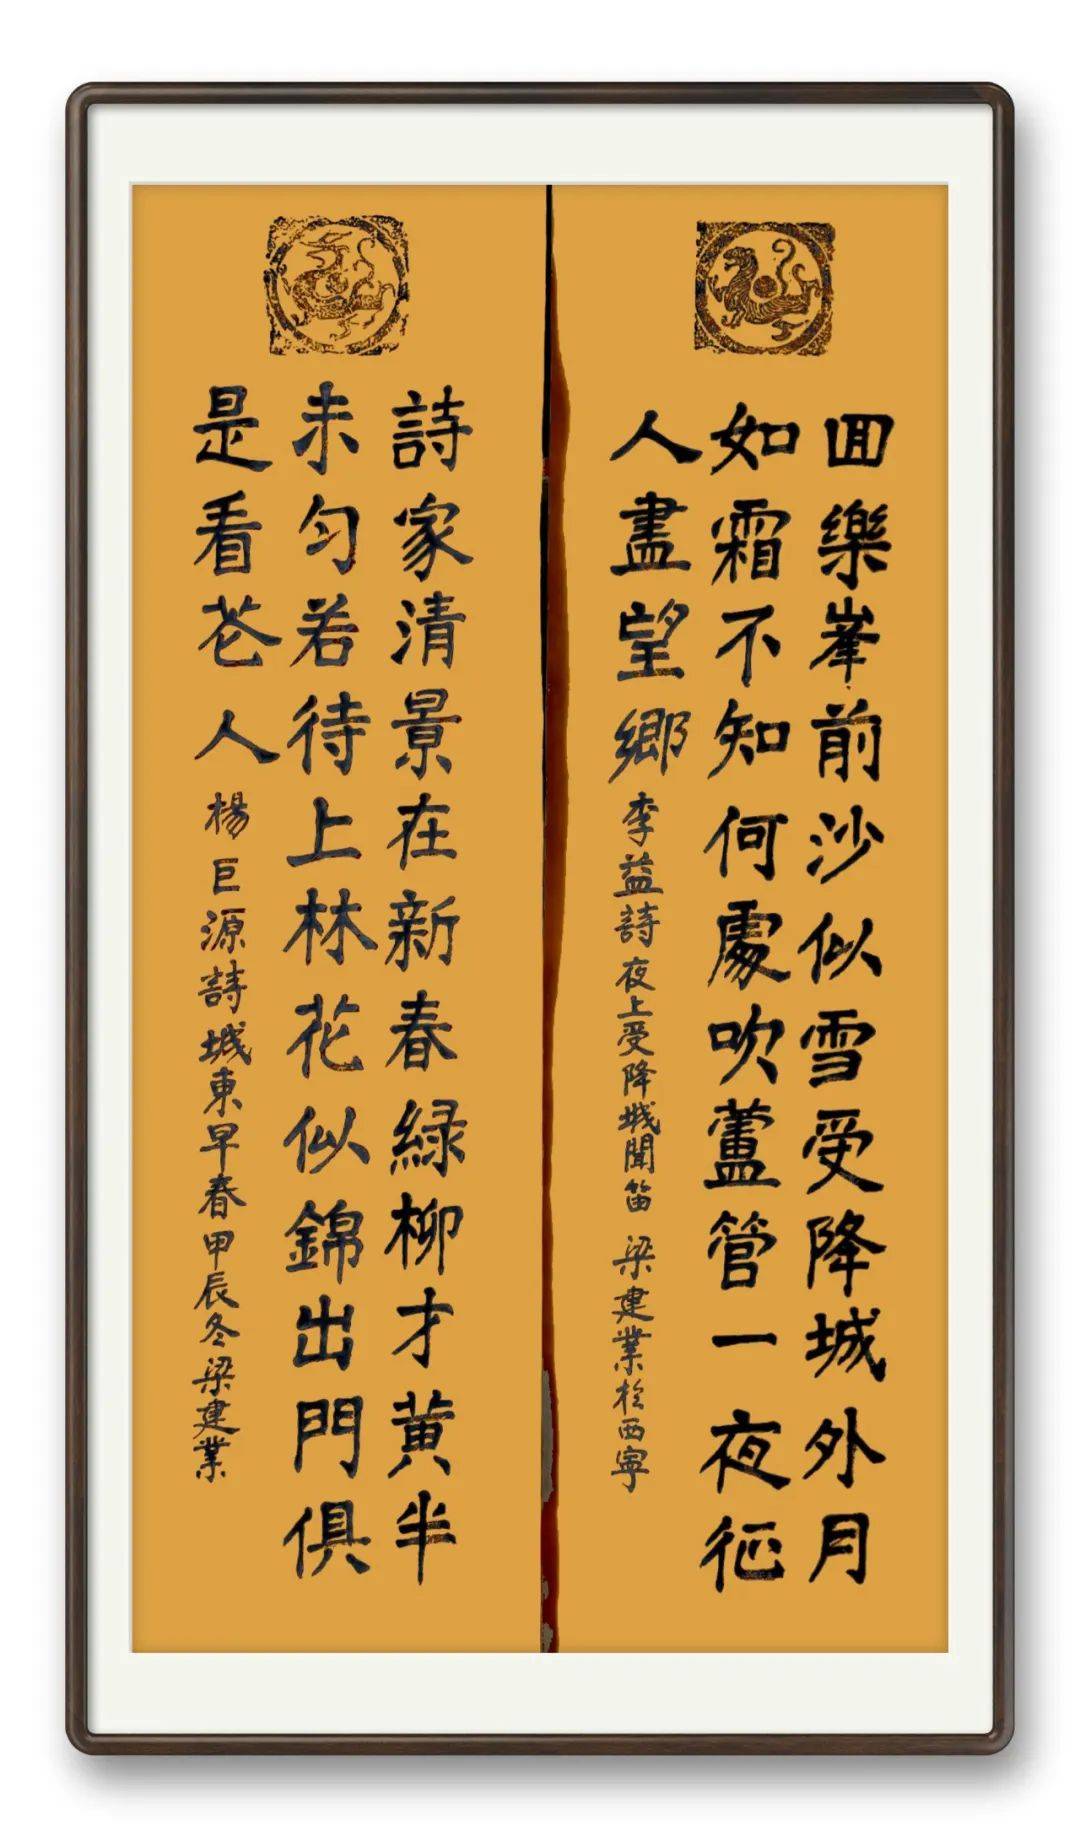 回樂峯前沙似雪受降城外月
如霜不知何處吹蘆管一夜征
人盡望鄉
李益詩夜上受降城聞笛 梁建業於西寧
詩家清景在新春綠柳才黄半
未匀若待上林花似錦出門俱
是看花人
楊巨源詩城東早春甲辰冬梁建業